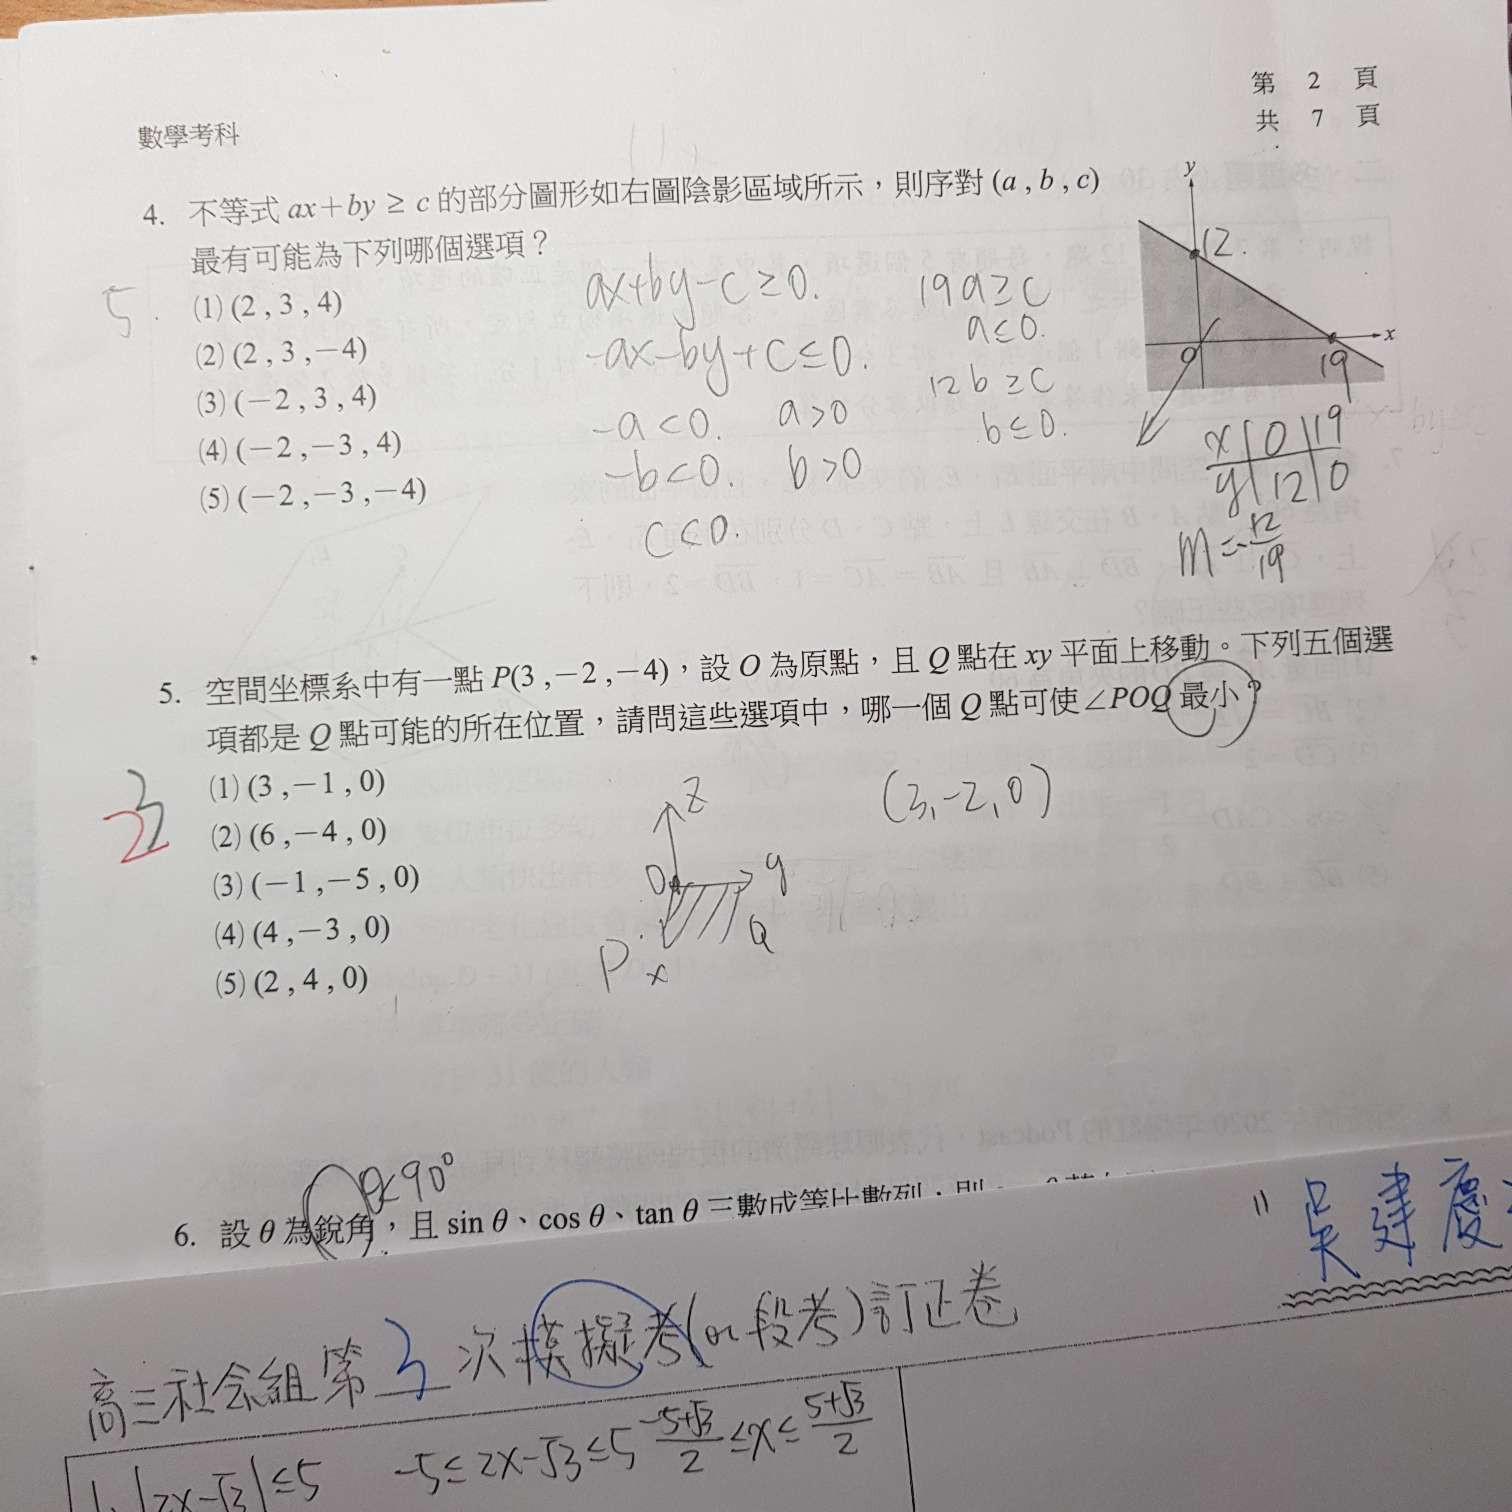 第 2 頁
共 7 頁
數學考科
4. 不等式 ax+by ≥ c 的部分圖形如右圖陰影區域所示，則序對 (a , b , c)
最有可能為下列哪個選項？
(1) (2 , 3 , 4)
(2) (2 , 3 , −4)
(3) (−2 , 3 , 4)
(4) (−2 , −3 , 4)
(5) (−2 , −3 , −4)
5.
ax+by−c≥0.
−ax−by+c≤0.
−a<0. a>0
−b<0. b>0
c<0.
19a≥c
a≤0.
12b≥c
b≤0.
y
12.
x
0
19
x 0 19
y 12 0
m=−12/19
5. 空間坐標系中有一點 P(3 , −2 , −4)，設 O 為原點，且 Q 點在 xy 平面上移動。下列五個選
項都是 Q 點可能的所在位置，請問這些選項中，哪一個 Q 點可使 ∠POQ 最小？
(1) (3 , −1 , 0)
(2) (6 , −4 , 0)
(3) (−1 , −5 , 0)
(4) (4 , −3 , 0)
(5) (2 , 4 , 0)
3
2
z
O
y
Q
P
x
(3,−2,0)
θ<90°
6. 設 θ 為銳角，且 sin θ、cos θ、tan θ 三數成等比數列，則
吳建慶
高三社會組第 3 次模擬考(or段考)訂正卷
1. |2x−√3|≤5 −5≤2x−√3≤5 (−5+√3)/2 ≤x≤ (5+√3)/2